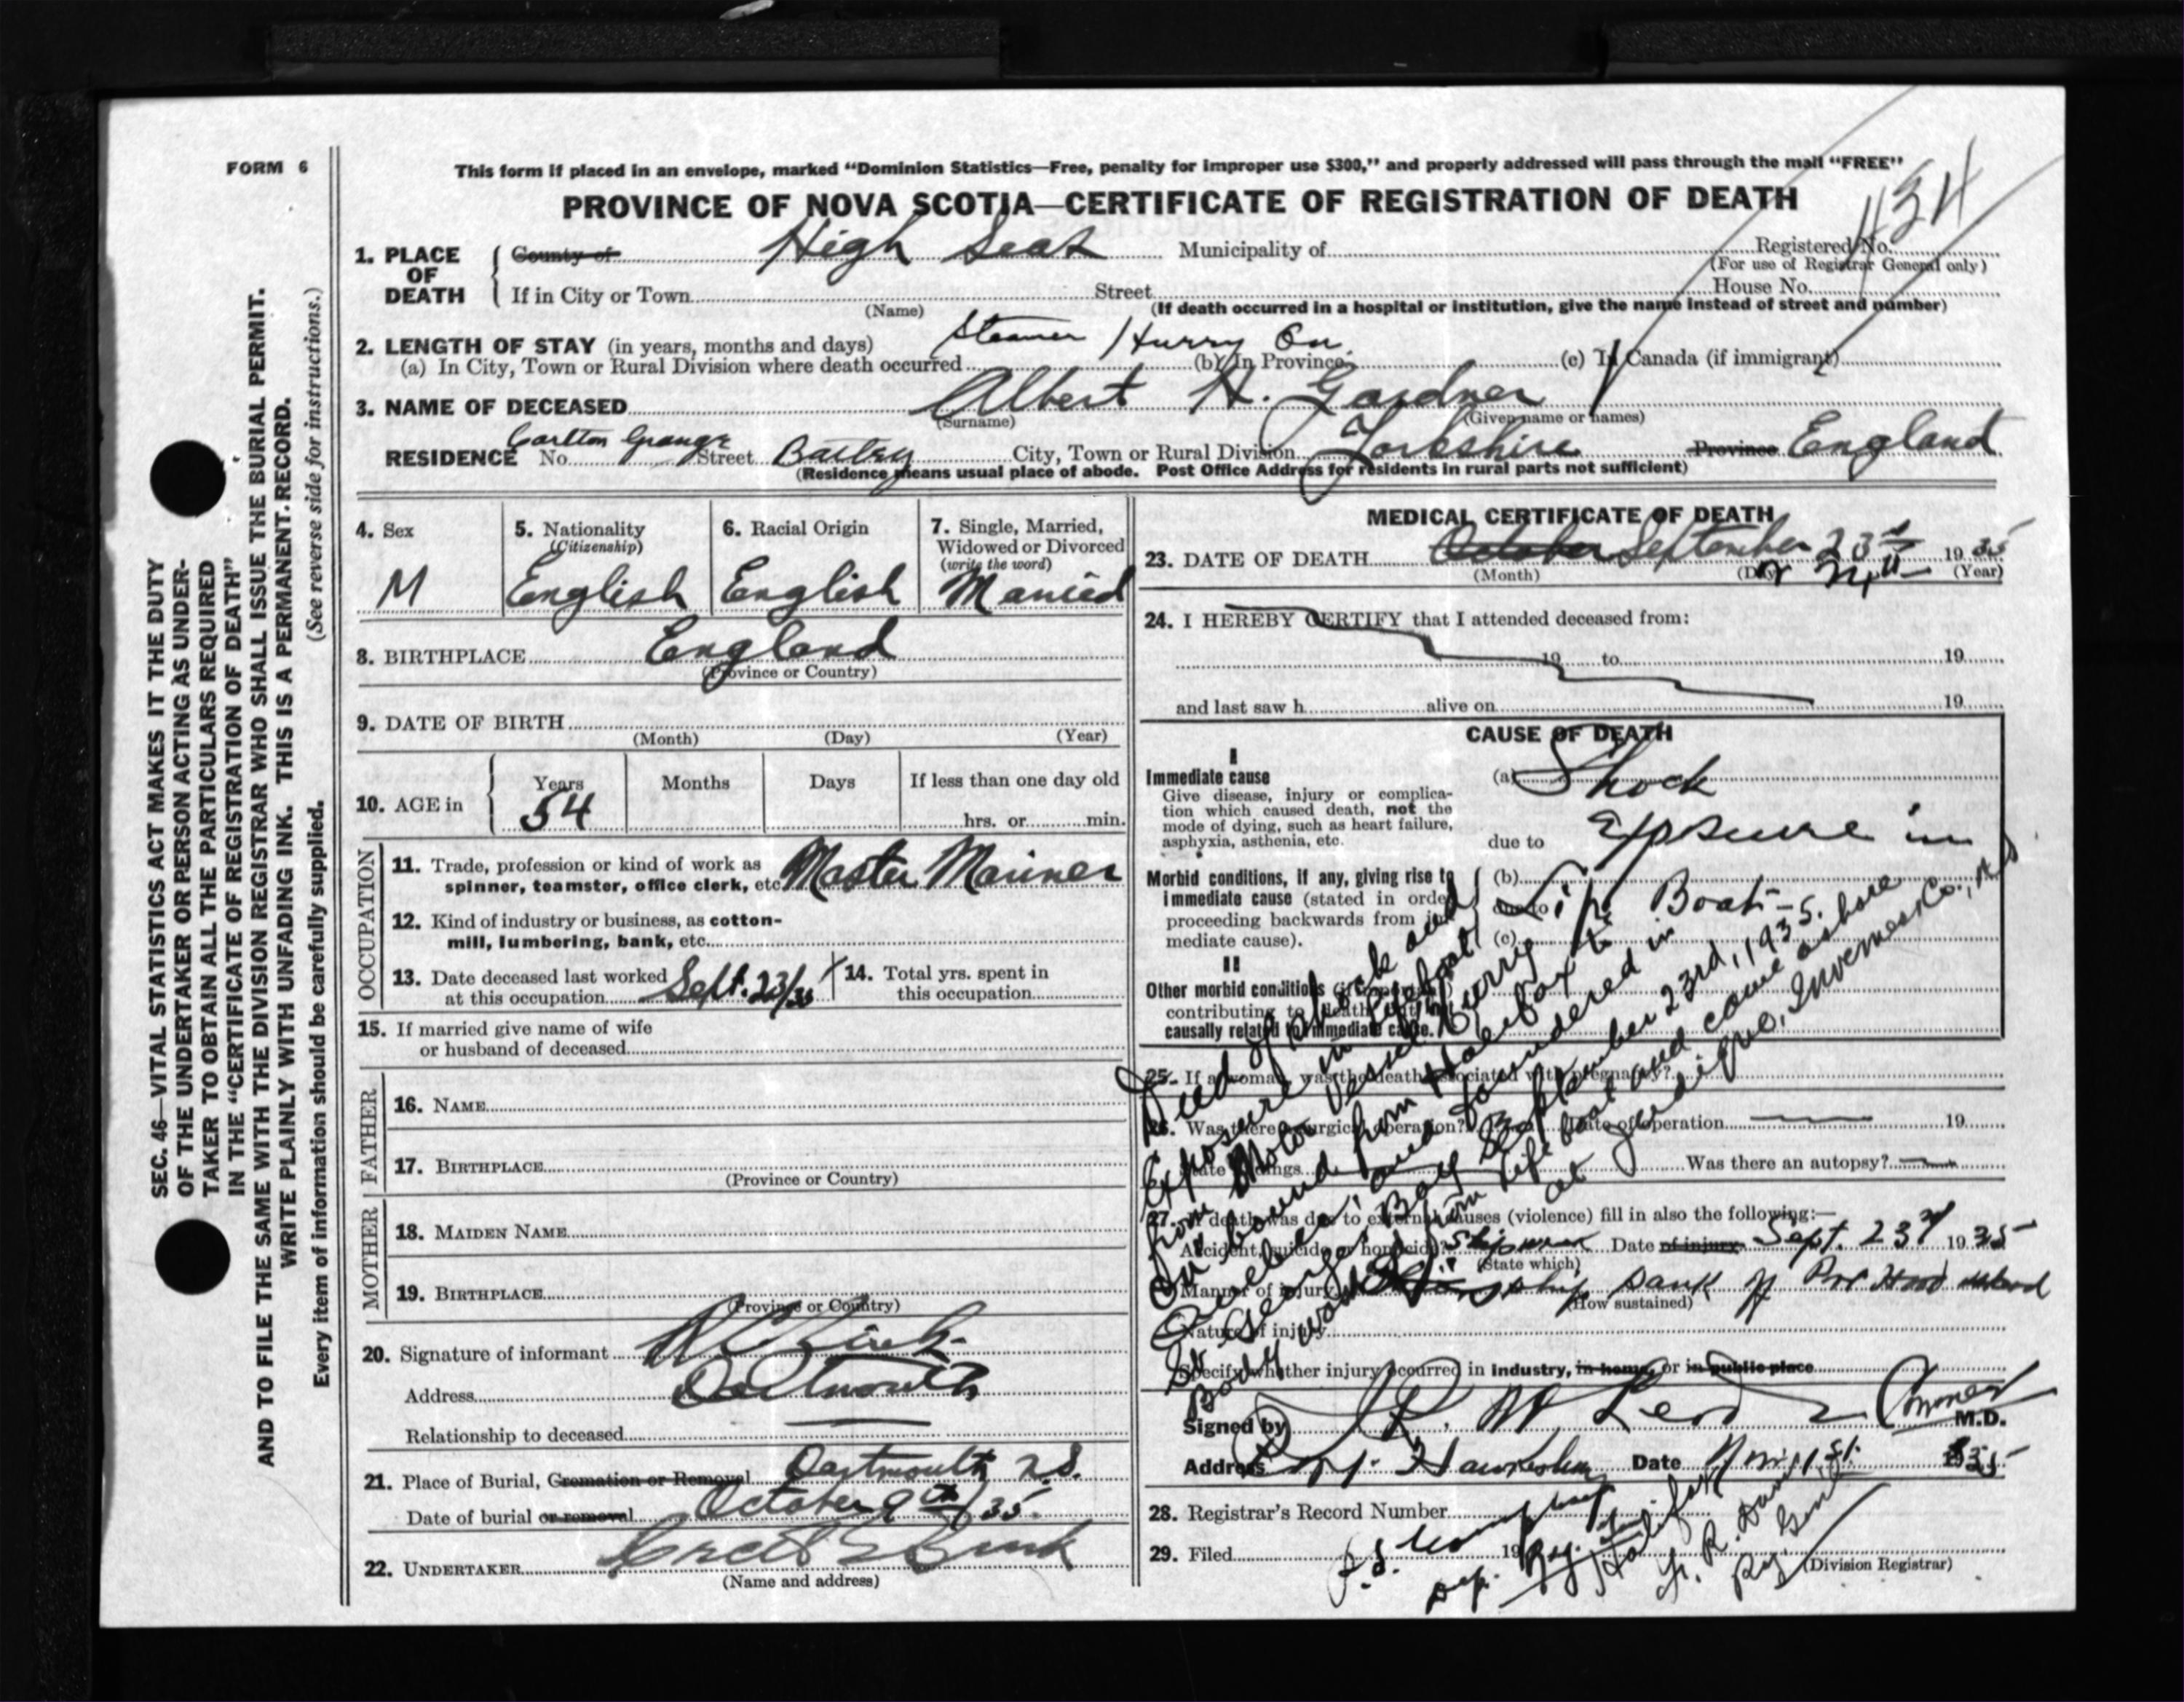 FORM 6
This form if placed in an envelope, marked “Dominion Statistics—Free, penalty for improper use $300,” and properly addressed will pass through the mail “FREE”
PROVINCE OF NOVA SCOTIA—CERTIFICATE OF REGISTRATION OF DEATH
434
1. PLACE OF DEATH County of High Seas Municipality of Registered No.
(For use of Registrar General only)
If in City or Town Street House No.
(Name) (If death occurred in a hospital or institution, give the name instead of street and number)
2. LENGTH OF STAY (in years, months and days) Steamer Hurry On
(a) In City, Town or Rural Division where death occurred (b) In Province (c) In Canada (if immigrant)
3. NAME OF DECEASED Albert H. Gardner
(Surname) (Given name or names)
RESIDENCE No. Carlton Grange Street Batley City, Town or Rural Division Yorkshire Province England
(Residence means usual place of abode. Post Office Address for residents in rural parts not sufficient)
4. Sex M
5. Nationality (Citizenship) English
6. Racial Origin English
7. Single, Married, Widowed or Divorced (write the word) Married
8. BIRTHPLACE England
(Province or Country)
9. DATE OF BIRTH
(Month) (Day) (Year)
10. AGE in Years 54 Months Days If less than one day old
hrs. or min.
OCCUPATION
11. Trade, profession or kind of work as spinner, teamster, office clerk, etc. Master Mariner
12. Kind of industry or business, as cotton-
mill, lumbering, bank, etc.
13. Date deceased last worked at this occupation Sept. 23/35
14. Total yrs. spent in this occupation
15. If married give name of wife
or husband of deceased
FATHER
16. NAME
17. BIRTHPLACE
(Province or Country)
MOTHER
18. MAIDEN NAME
19. BIRTHPLACE
(Province or Country)
20. Signature of informant
Address Dartmouth
Relationship to deceased
21. Place of Burial, Cremation or Removal Dartmouth N.S.
Date of burial or removal October 9th/35
22. UNDERTAKER
(Name and address)
MEDICAL CERTIFICATE OF DEATH
23. DATE OF DEATH October September 23rd 1935
or 24th
(Month) (Day) (Year)
24. I HEREBY CERTIFY that I attended deceased from:
19 to 19
and last saw h alive on 19
CAUSE OF DEATH
I
Immediate cause (a) Shock
Give disease, injury or complica-
tion which caused death, not the
mode of dying, such as heart failure,
asphyxia, asthenia, etc.
due to Exposure in
Morbid conditions, if any, giving rise to
immediate cause (stated in order
proceeding backwards from im-
mediate cause).
(b) Life Boat
due to
(c)
II
Other morbid conditions (if important)
contributing to death but not
causally related to immediate cause.
Died of shock and
Exposure in lifeboat
from Motor Vessel "Hurry
On" bound from Halifax to
Quebec, and foundered in
St. George's Bay September 23rd, 1935.
Body washed from life boat and came ashore
at Judique, Inverness Co., N.S.
25. If a woman, was the death associated with pregnancy?
26. Was there a surgical operation? Date of operation 19
State findings Was there an autopsy?
27. If death was due to external causes (violence) fill in also the following:—
Accident, suicide or homicide? Shipwreck Date of injury Sept. 23rd 1935
(State which)
Manner of injury ship sank off Port Hood Island
(How sustained)
Nature of injury
Specify whether injury occurred in industry, in home, or in public place
Signed by McLeod Coroner M.D.
Address Pt. Hawkesbury Date Nov. 1st. 1935
28. Registrar's Record Number
29. Filed 19
Dep. Reg. Halifax
(Division Registrar)
SEC. 46—VITAL STATISTICS ACT MAKES IT THE DUTY
OF THE UNDERTAKER OR PERSON ACTING AS UNDER-
TAKER TO OBTAIN ALL THE PARTICULARS REQUIRED
IN THE “CERTIFICATE OF REGISTRATION OF DEATH”
AND TO FILE THE SAME WITH THE DIVISION REGISTRAR WHO SHALL ISSUE THE BURIAL PERMIT.
WRITE PLAINLY WITH UNFADING INK. THIS IS A PERMANENT RECORD.
(See reverse side for instructions.)
Every item of information should be carefully supplied.